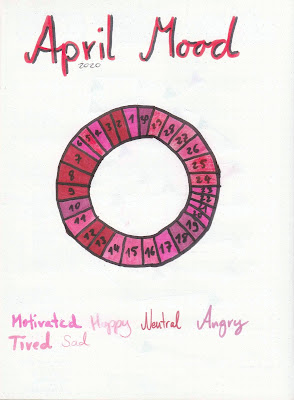 April Mood
2020
1
2
3
5
6
7
8
9
10
11
12
13
14
15
16
17
18
19
24
25
26
Motivated Happy Neutral Angry
Tired Sad